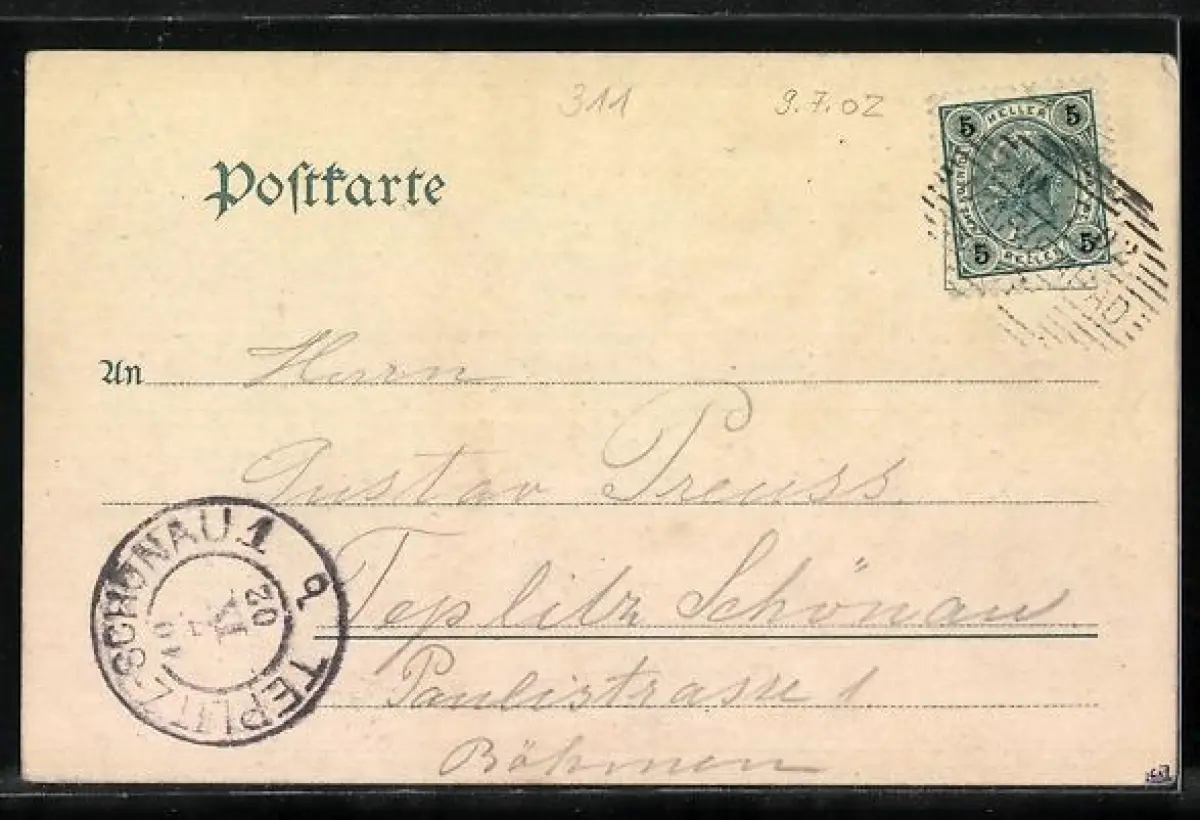 311 9.7.02
Postkarte
5 HELLER 5
5 HELLER 5
An Herrn
Gustav Preuss.
Teplitz Schönau.
Paulistrasse 1
Böhmen
TEPLITZ-SCHÖNAU 1
02